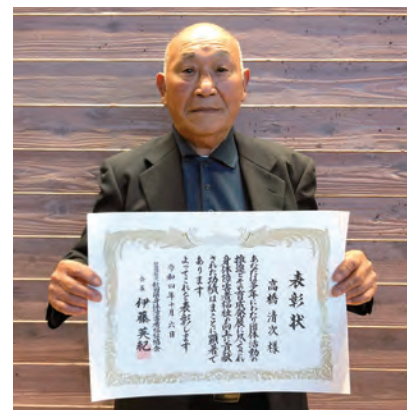 表彰状
高橋清次 様
あなたは多年にわたり団体活動の
推進とその育成発展に尽くされ
身体障害者福祉の向上に貢献
された功績はまことに顕著で
あります
よってこれを表彰します
令和四年十月六日
会長 伊藤英紀